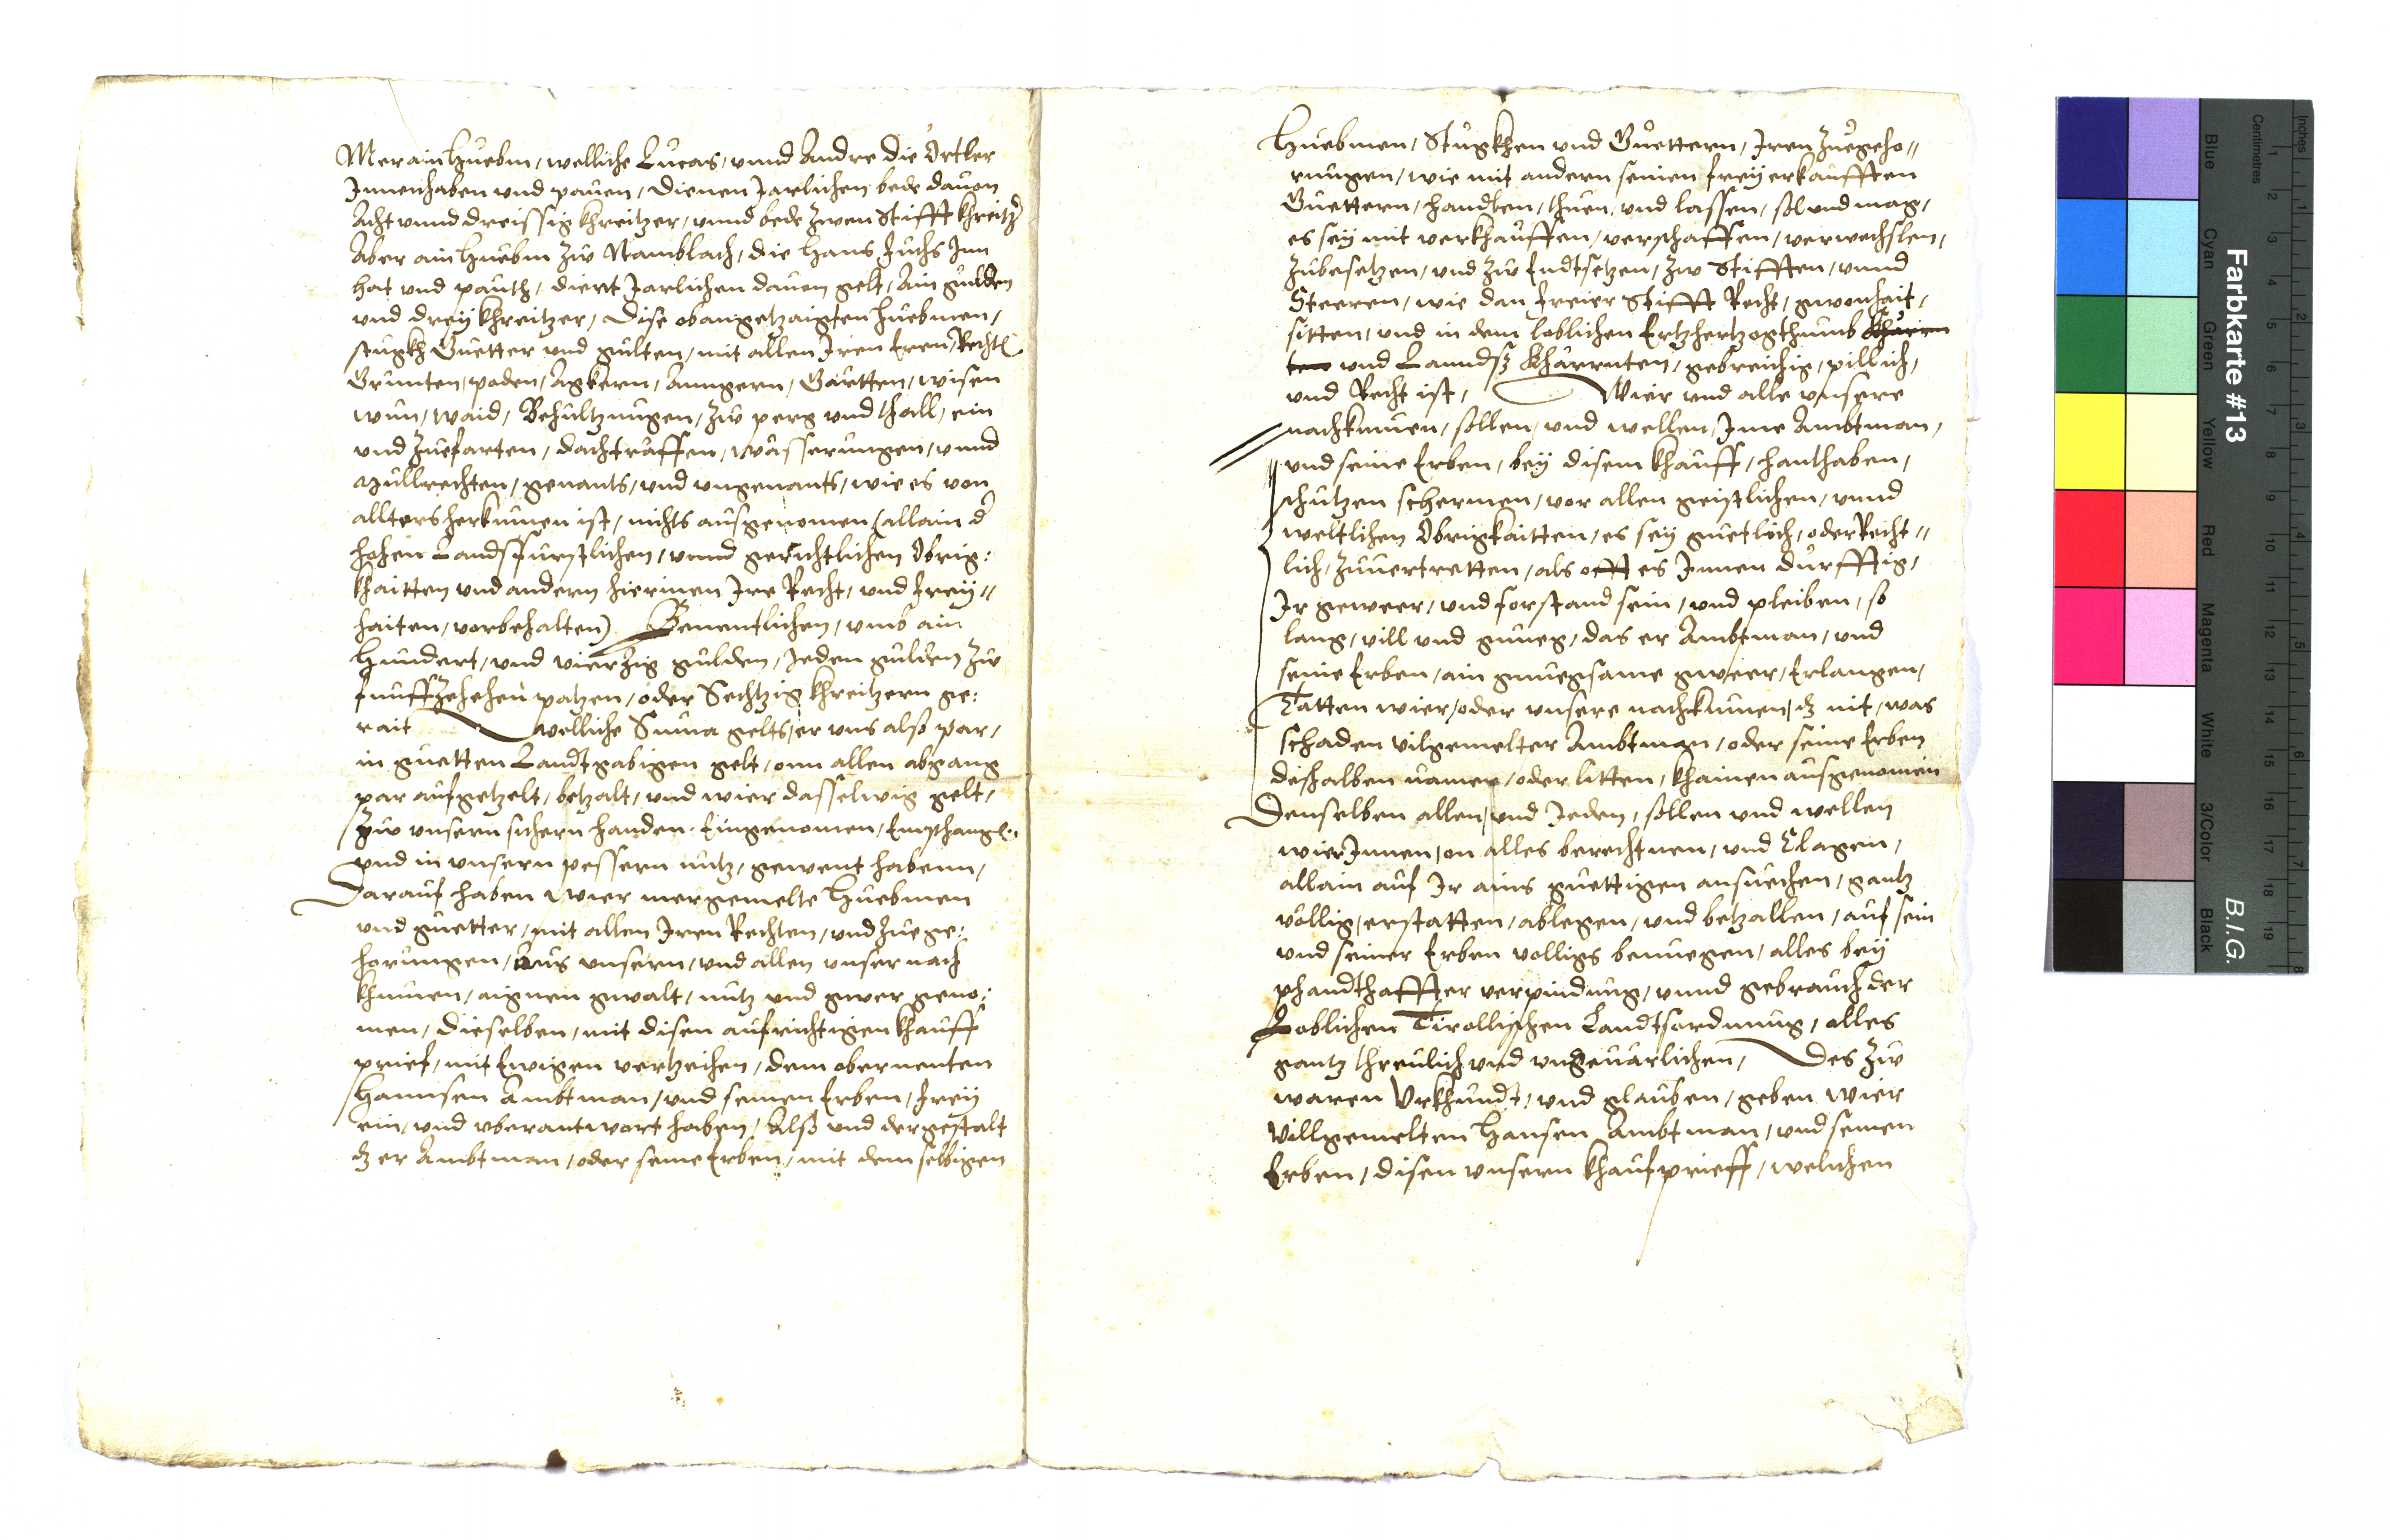 Mer ain Huebm, welliche Lucas, vnnd Andre die Örtler
Innenhaben vnd pauen, dienen Jarlichen bede dauon
Acht vnnd dreissig khreitzer, vnnd bede zwen Stifft khreitzer
Aber ain Huebm zw Namblach, die Hans Fuchs Inn
hat vnd pauth, dient Jarlichen dauon gelt, Ain gulden
vnd drey khreitzer, Dise obangetzaigten huebmen,
stugkh Guetter vnd gulten, mit allen Iren Eren, Rechten
Grunten, poden, Agkern, Anngern, Gärtten, wisen
wun, waid, Behultzungen, zw perg vnd thall, ein
vnd Zuefarten, dachtraffen, wässerungen, vnnd
Müllrechten, genants, vnd vngenants, wie es von
allters herkumen ist, nichts ausgenomen (allain der
hohen Landsfurstlichen, vnnd gerichtlichen Obrig:
khaitten vnd andern hierinen Ire Recht, vnd frey„
haiten, vorbehalten) Benentlichen, vmb ain
Hundert, vnd vierzig gulden, Jeden gulden zw
funffzehehen patzen, oder Sechtzig khreitzern ge:
rait welliche Suma gelts, er vns also par,
in guetten Landtgabigen gelt, onn allen abgang
par aufgetzelt, betzalt, vnd wier dasselwig gelt,
zw vnsern sichern handen Eingenomen, Emphangen
vnd in vnsern pessern nutz, gewent habenn,
Darauf haben wier mergemelte Huebmen
vnd guetter, mit allen Iren Rechten, vnd Zuege:
horungen, aus vnsern, vnd allen vnser nach
khumen, aignen gwalt, nutz vnd gwer geno:
men, dieselben, mit disen aufrichtigen khauff
prief, mit Ewigen vertzeihen, dem obernenten
Hannsen Ambtman, vnd seinen Erben, frey
ein, vnd vberantwort haben, Also vnd dergestalt
dz er Ambtman, oder seine Erben, mit dem selbigen
Huebmen, Stugkhen vnd Guettern, Iren Zuegeho„
rungen, wie mit andern seinen frey erkaufften
Guettern, handlen, thuen, vnd lassen, sol vnd mag,
es sey mit verkhauffen, verschaffen, verwechslen,
zubesetzen, vnd zw Endtsetzen, zw Stifften, vnnd
Steeren, wie dan freier Stifft Recht, gwonhait,
sitten, und in dem loblichen Ertzhertzogthumb Khärrn
ten vnd Lanndß Khärrnten, gebreichig, pillich,
vnd Recht ist, Wier vnd alle vnsere
nachkumen, sollen, vnd wellen, Ime Ambtman,
vnd seine Erben, bey disem khauff, hanthaben,
schutzen schermen, vor allen geistlichen, vnnd
weltlichen Obrigkaitten, es sey guetlich, oder Recht„
lich, zuuertretten, als offt es Innen durfftig,
Ir geweer, vnd forstand sein, vnd pleiben, so
lang, vill vnd gnueg, das er Ambtman, vnd
seine Erben, ain gnuegsame gweer, Erlangen,
Tätten wier, oder vnsere nachkumen, dz nit, was
schaden vilgemelter Ambtman, oder seine Erben
deßhalben namen, oder litten, khainen ausgenomen
Denselben allen, vnd Jeden, sollen vnd wellen
wier Innen, on alles berechtnen, vnd Clagen,
allain auf Ir ains guettigen ansuechen, gantz
völlig, erstatten, ablegen, vnd betzallen, auf sein
vnd seiner Erben volligs benuegen, alles bey
phandthaffter verpindung, vnnd gebrauch der
Loblichen Tirollischen Landtsordnung, alles
gantz threulich vnd vngeuärlichen, Des zw
waren Vrkhundt, vnd glauben, geben wier
Villgemelten Hansen Ambtman, vnd seinen
Erben, disen vnsern khaufprieff, welichen
Farbkarte #13
B.I.G.
Inches
Centimetres
Blue
Cyan
Green
Yellow
Red
Magenta
White
3/Color
Black